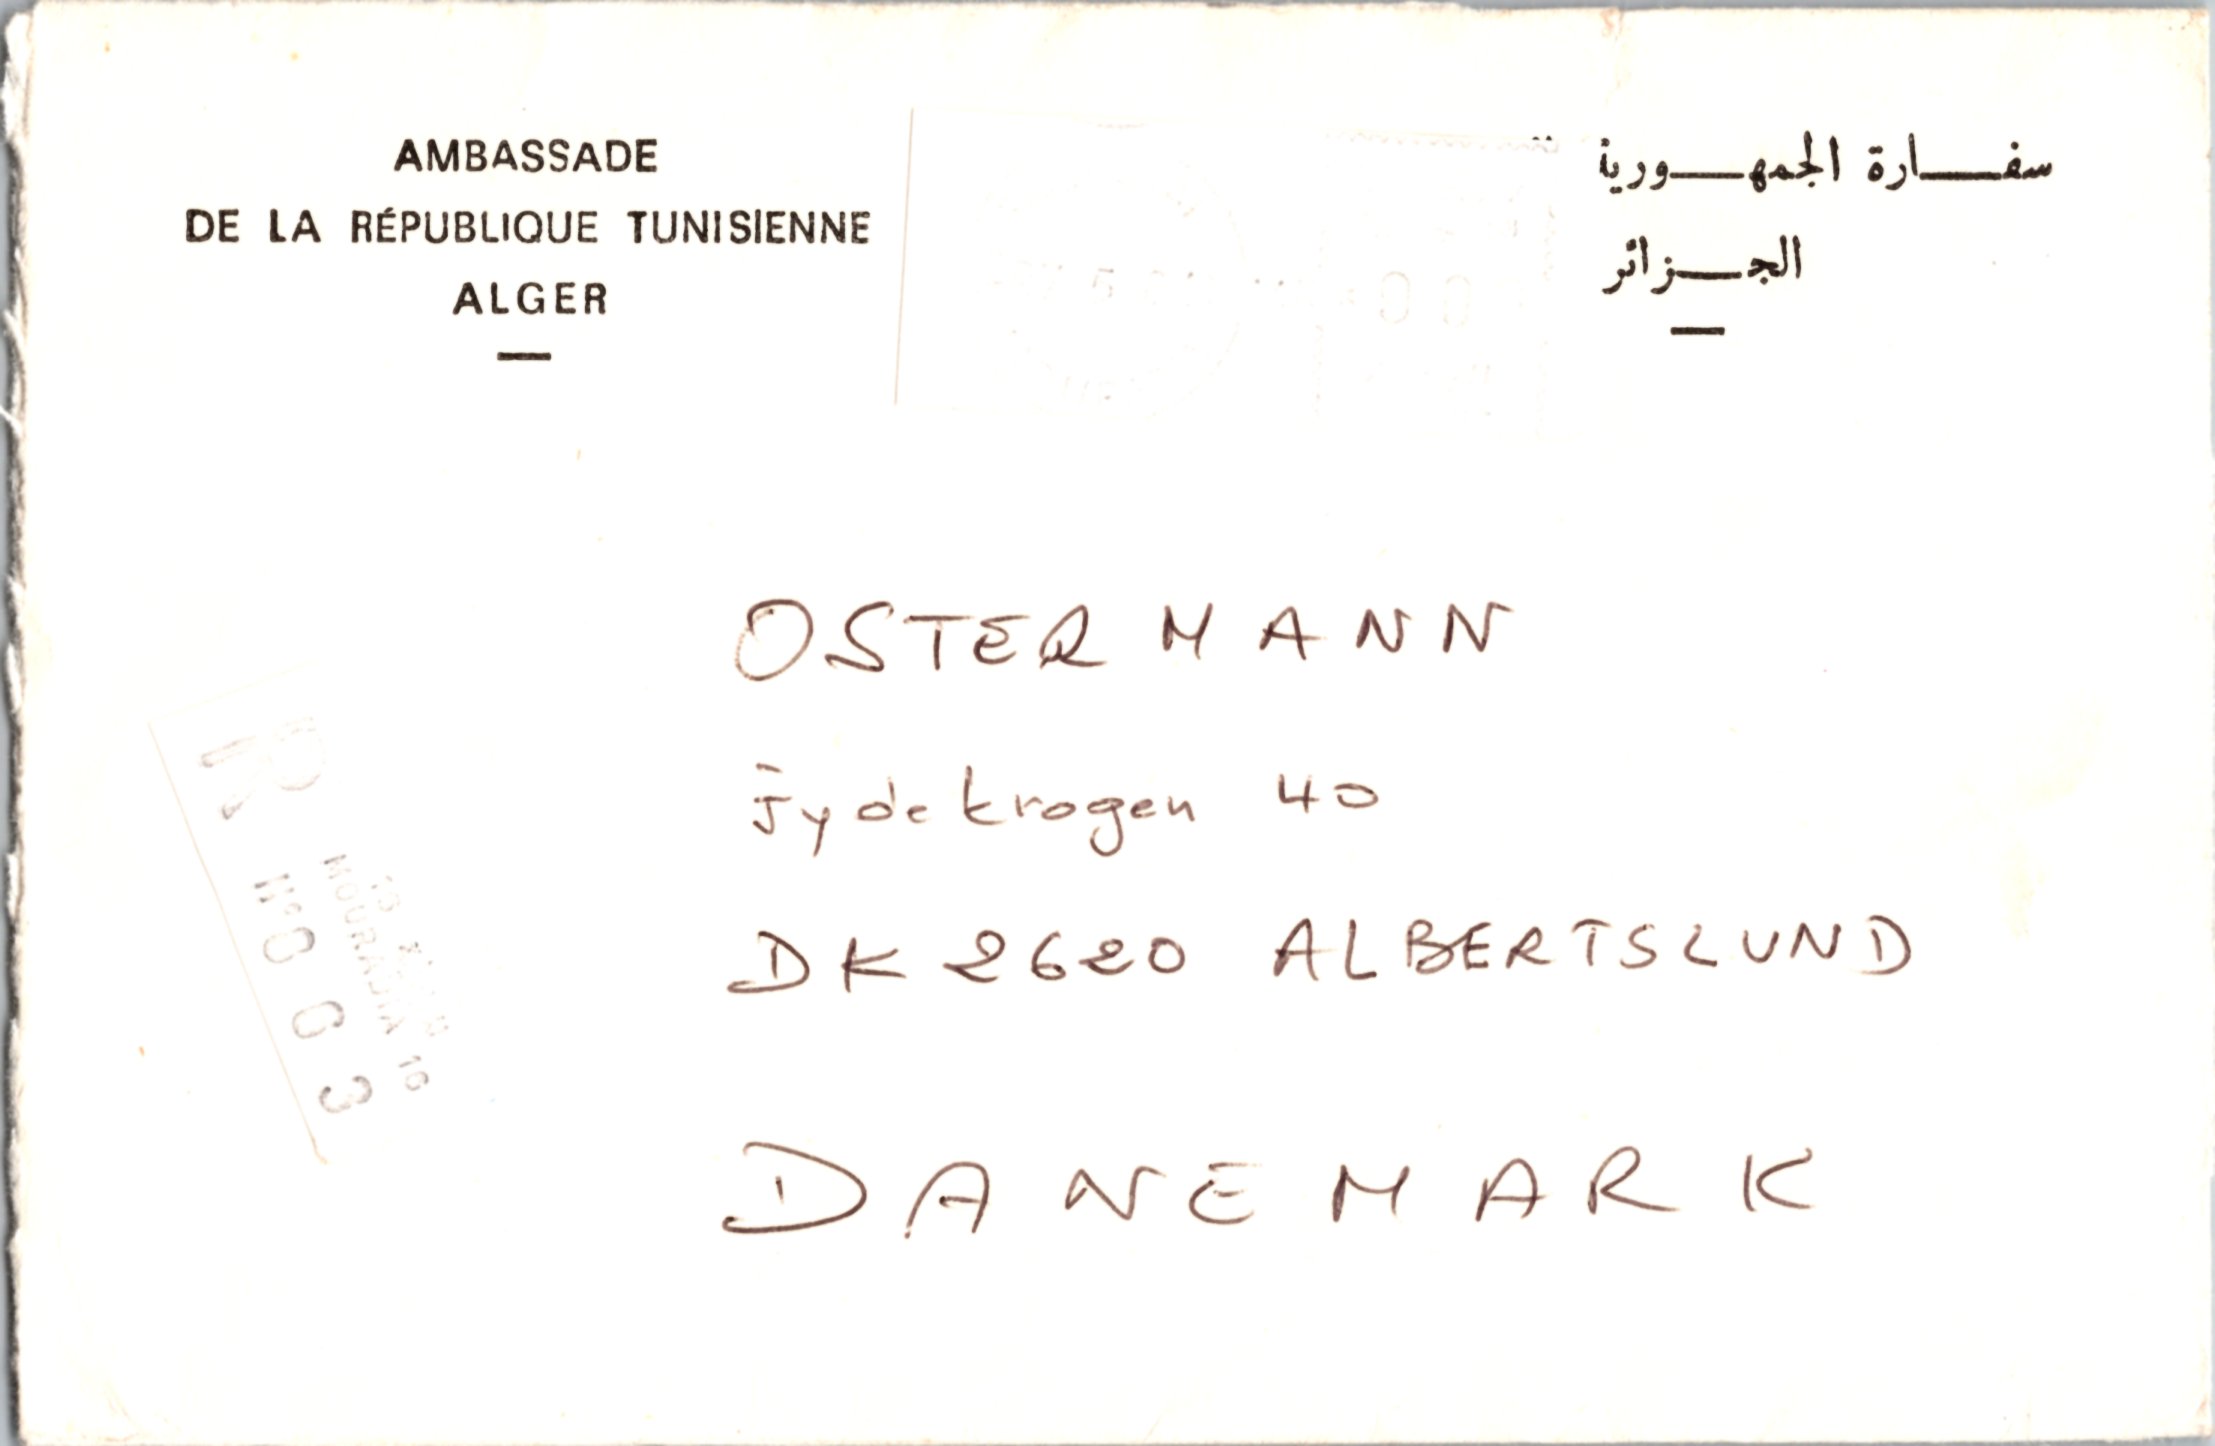 AMBASSADE
DE LA RÉPUBLIQUE TUNISIENNE
ALGER
سفـــارة الجمهـــورية
الجـــزائر
OSTERMANN
Jydekrogen 40
DK 2620 ALBERTSLUND
DANEMARK
R
MOURADIA 16
N° 0 6 3